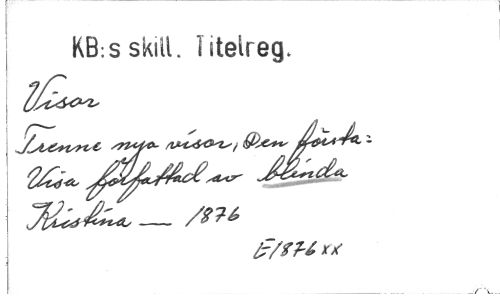 KB:s skill. Titelreg.
Visor
Trenne nya visor, Den första:
Visa författad av blinda
Kristina — 1876
E1876xx